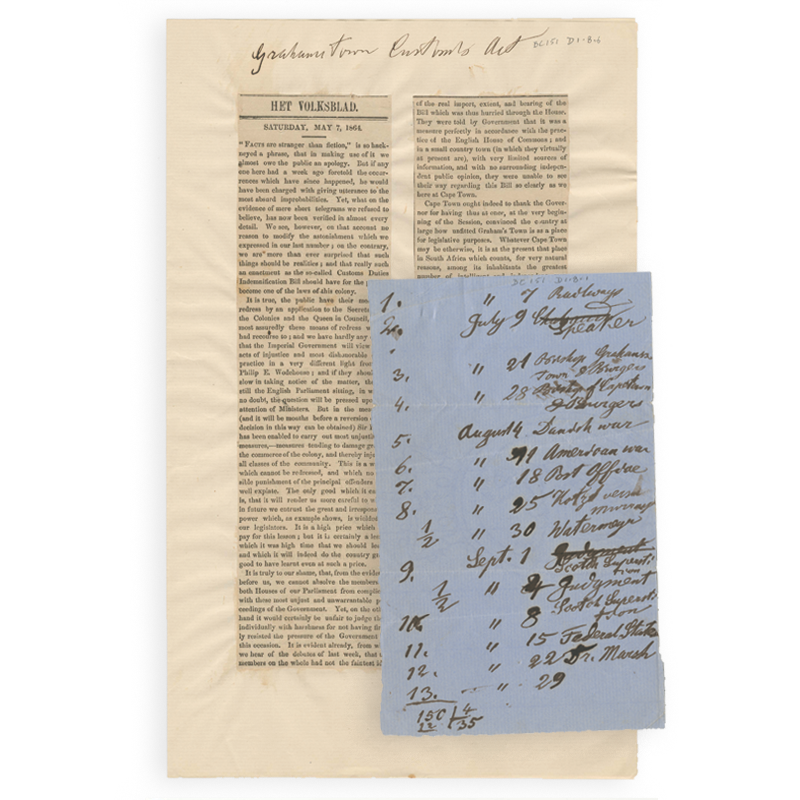 Grahamstown Customs Act BC151 D1-B-6
HET VOLKSBLAD.
SATURDAY, MAY 7, 1864.
"FACTS are stranger than fiction," is so hack-
neyed a phrase, that in making use of it we
almost owe the public an apology. But if any
one here had a week ago foretold the occur-
rences which have since happened, he would
have been charged with giving utterance to the
most absurd improbabilities. Yet, what on the
evidence of mere short telegrams we refused to
believe, has now been verified in almost every
detail. We see, however, on that account no
reason to modify the astonishment which we
expressed in our last number; on the contrary,
we are more than ever surprised that such
things should be realities; and that really such
an enactment as the so-called Customs Duties
Indemnification Bill should have for the
become one of the laws of this colony.
It is true, the public have their
redress by an application to the Secre
the Colonies and the Queen in Council,
most assuredly these means of redress w
had recourse to; and we have hardly any
that the Imperial Government will view
acts of injustice and most dishonorable
practice in a very different light fro
Philip E. Wodehouse; and if they shou
slow in taking notice of the matter, th
still the English Parliament sitting, in w
no doubt, the question will be pressed upo
attention of Ministers. But in the mea
(and it will be months before a reversion
decision in this way can be obtained) Sir
has been enabled to carry out most unjusti
measures,—measures tending to damage gr
the commerce of the colony, and thereby inju
all classes of the community. This is a w
which cannot be redressed, and which no
sible punishment of the principal offenders
well expiate. The only good which it ca
is, that it will render us more careful to w
in future we entrust the great and irrespons
power which, as example shows, is wielded
our legislators. It is a high price which
pay for this lesson; but it is certainly a les
which it was high time that we should lea
and which it will indeed do the country gr
good to have learnt even at such a price.
It is truly to our shame, that, from the evide
before us, we cannot absolve the members
both Houses of our Parliament from complic
with these most unjust and unwarrantable p
ceedings of the Government. Yet, on the oth
hand it would certainly be unfair to judge th
individually with harshness for not having fir
ly resisted the pressure of the Government
this occasion. It is evident already, from w
we hear of the debates of last week, that t
members on the whole had not the faintest i
of the real import, extent, and bearing of the
Bill which was thus hurried through the House.
They were told by Government that it was a
measure perfectly in accordance with the prac-
tice of the English House of Commons; and
in a small country town (in which they virtually
at present are), with very limited sources of
information, and with no surrounding indepen-
dent public opinion, they were unable to see
their way regarding this Bill so clearly as we
here at Cape Town.
Cape Town ought indeed to thank the Gover-
nor for having thus at once, at the very begin-
ning of the Session, convinced the country at
large how unfitted Graham's Town is as a place
for legislative purposes. Whatever Cape Town
may be otherwise, it is at the present that place
in South Africa which counts, for very natural
reasons, among its inhabitants the greatest
number of
BC151 D1:B:1
1. " 7 Railways
2. July 9
Speaker
3. " 21 Bishop Grahams
Town & Burgers
4. " 28 of Capetown
& Burgers
5. August 4 Danish war
6. " 11 American war
7. " 18 Post Office
8. " 25 Kotzé versus
Murray
1/2 " 30 Waterways
9. Sept. 1
Scotch Supersti
tion
1/2 " 4 Judgment
10. " 8 Scotch Supersti
tion
11. " 15 Federal State
12. " 22 Dr. Marsh
13. " 29
150 4
22 35